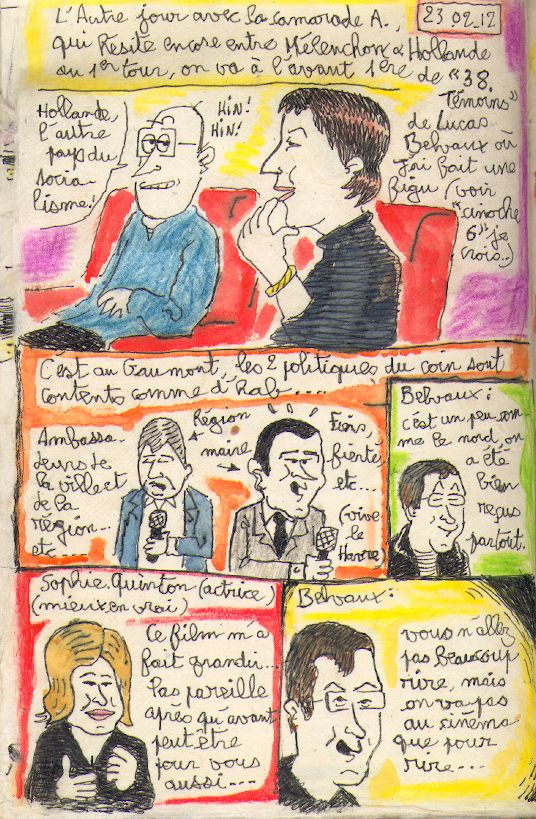 L'Autre jour avec la camarade A.,
23 02 12
qui hésite encore entre Mélenchon & Hollande
au 1er tour, on va à l'avant 1ère de "38
Témoins"
de Lucas
Belvaux où
j'ai fait une
figu (voir
"cinoche
6" je
crois..)
Hollande,
l'autre
pays du
socia-
lisme!
HiN!
HiN!
C'est au Gaumont, les 2 politiques du coin sont
contents comme d'hab....
Ambassa-
deurs de
la ville et
de la
région...
etc....
Région
maire
Fiers,
fierté,
etc...
(vive le
Havre)
Belvaux:
c'est un peu com-
me le nord, on
a été
bien
reçus
partout.
Sophie Quinton (actrice)
(mieux en vrai)
Ce film m'a
fait grandir...
Pas pareille
après qu'avant
peut être
pour vous
aussi....
Belvaux:
vous n'allez
pas beaucoup
rire, mais
on va pas
au cinéma
que pour
rire...